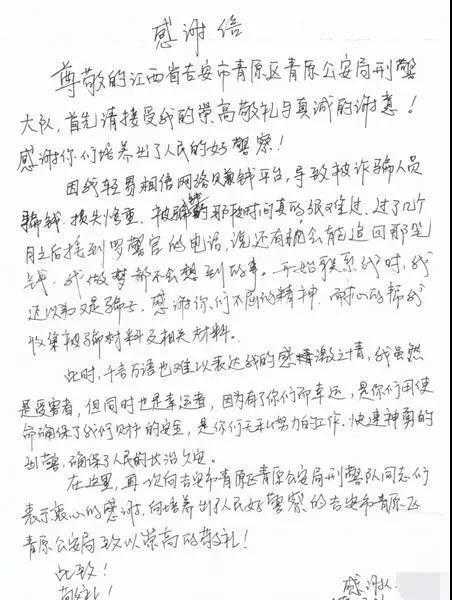 感谢信
尊敬的江西省吉安市青原区青原公安局刑警
大队,首先请接受我的崇高敬礼与真诚的谢意!
感谢你们培养出了人民的好警察!
因我轻易相信网络赚钱平台,导致被诈骗人员
骗钱,损失惨重,被骗的那段时间真的很难过,过了几个
月之后接到罗警官的电话,说还有机会能追回那笔
钱,我做梦都不会想到的事。开始联系我时,我
还以为又是骗子,感谢你们不屈的精神,耐心的帮我
收集被骗材料及相关材料。
此时,千言万语也难以表达我的感激之情,我虽然
是受害者,但同时也是幸运者,因为有了你们而幸运,是你们用使
命确保了我们财产的安全,是你们无私努力的工作,快速神勇的
出警,确保了人民的长治久安。
在这里,再次向吉安市青原区青原公安局刑警队同志们
表示衷心的感谢,向培养出了人民好警察的吉安市青原区
青原公安局致以崇高的敬礼!
此致!
敬礼!
感谢人